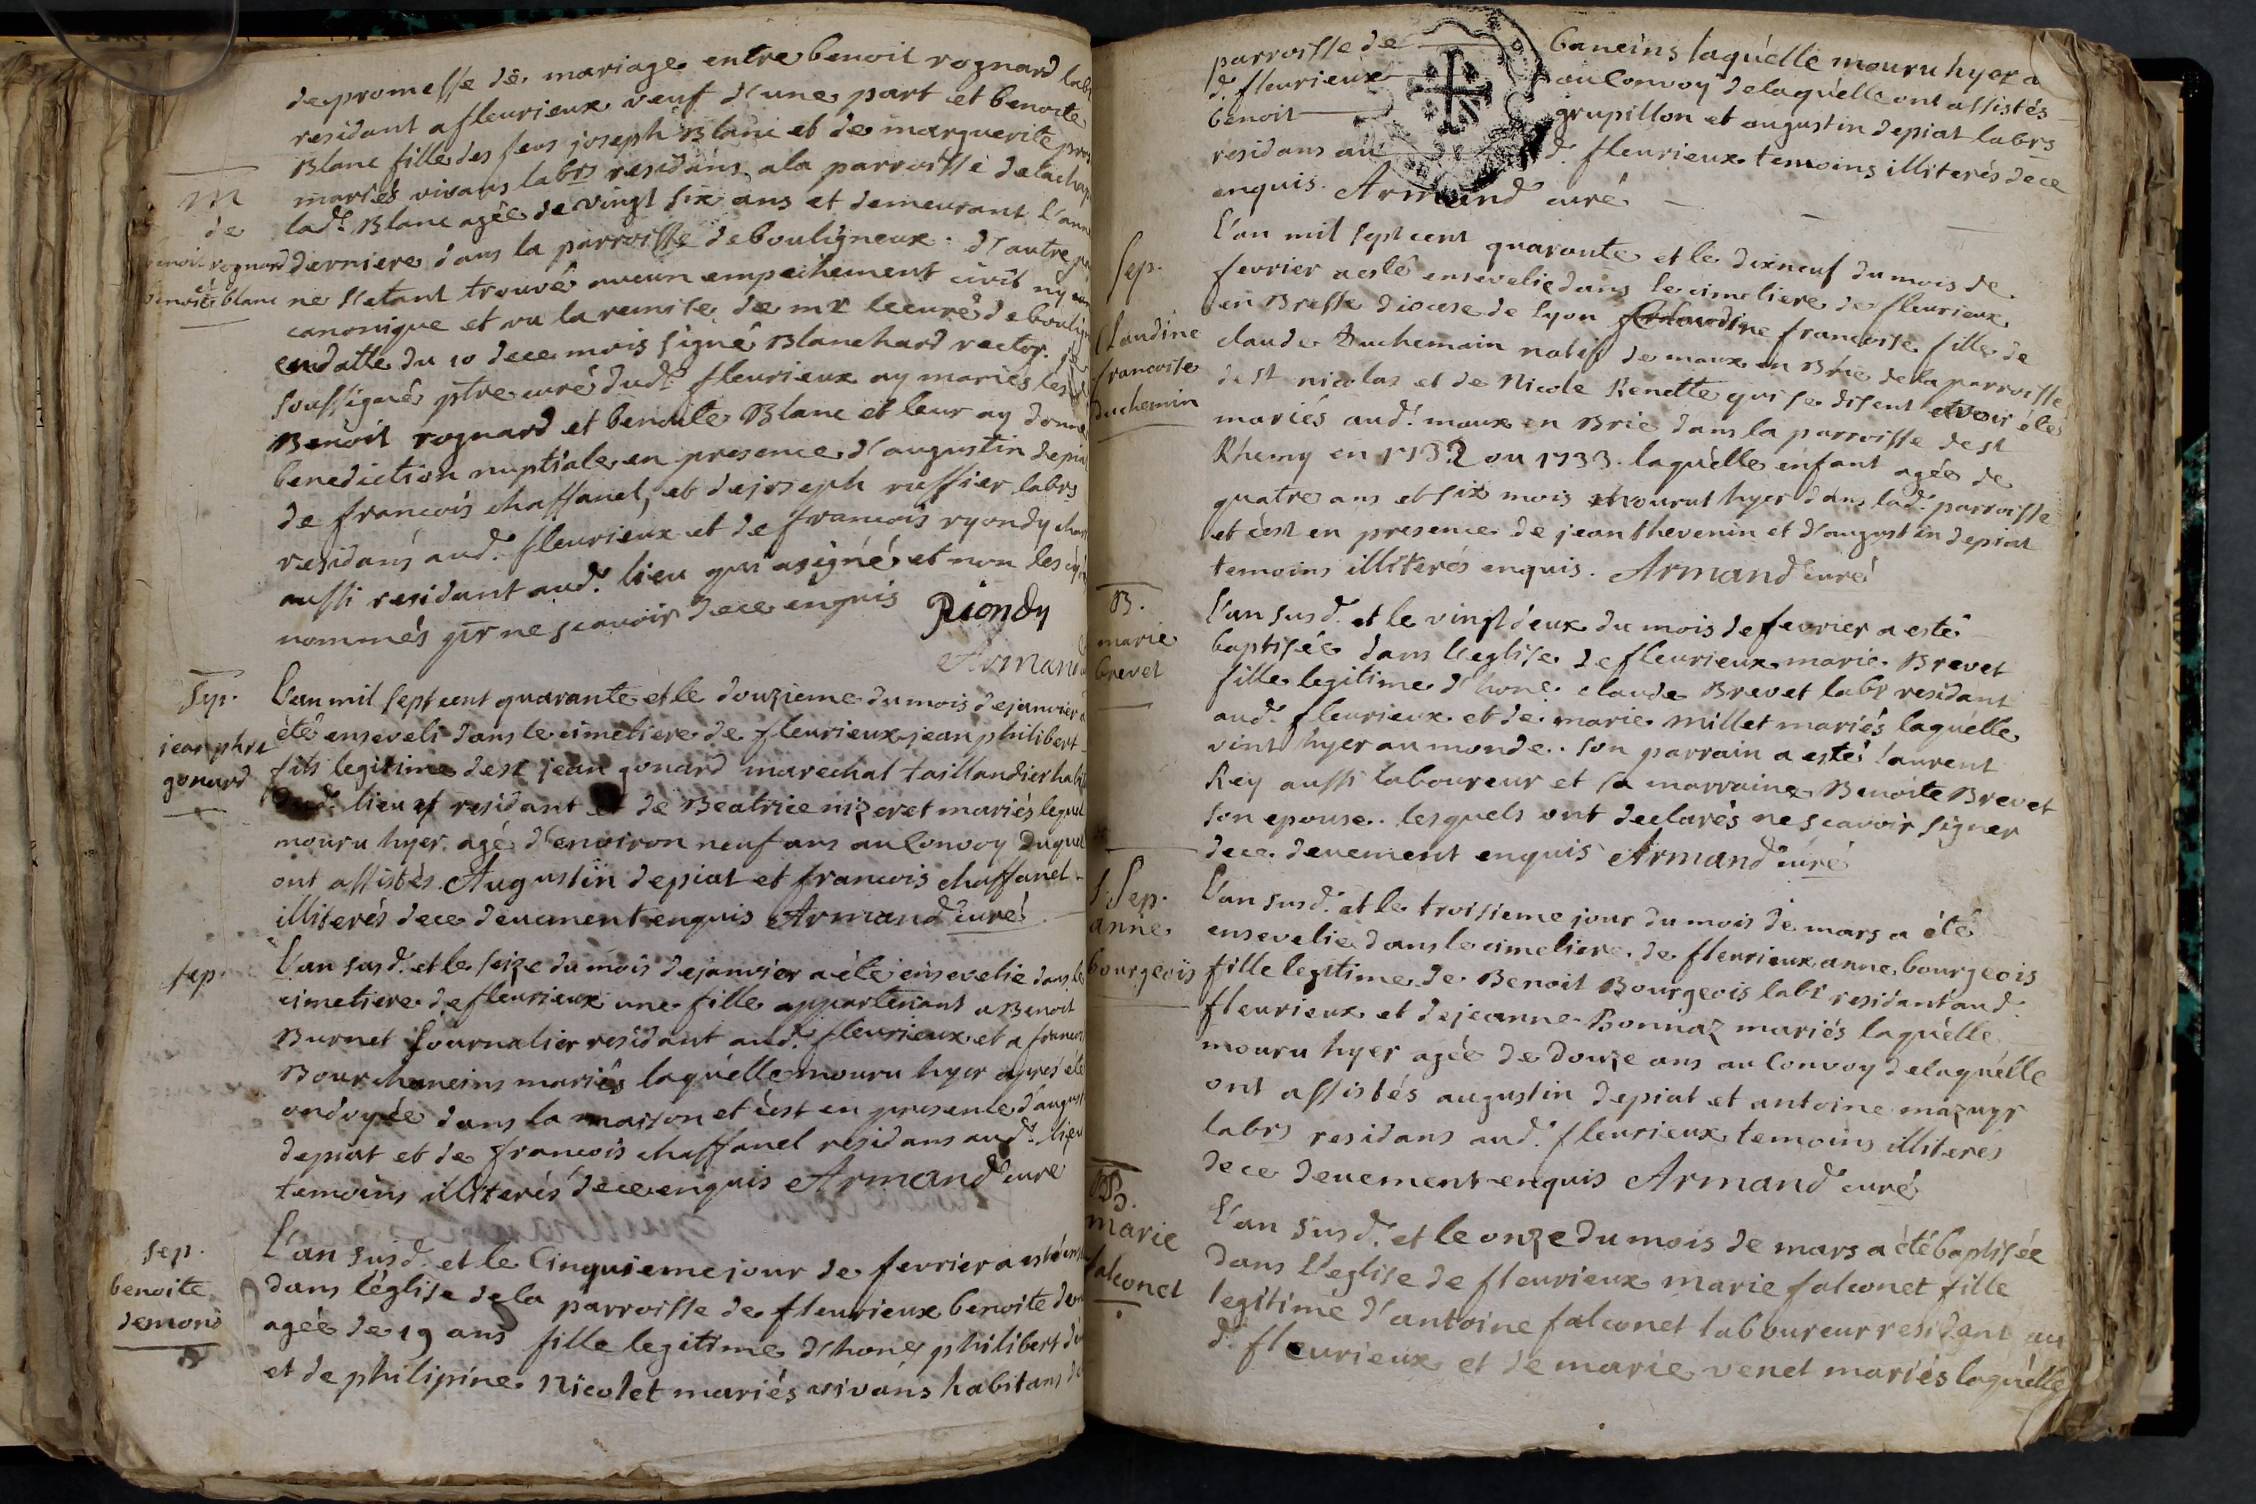 de promesse de mariage entre benoit rognard lab
residant a fleurieux veuf d'une part et benoite
Blanc fille des feus joseph Blanc et de marguerite
M
mariés vivans labrs residans a la parroisse de lachap
de
lad.e Blanc agée de vingt six ans et demeurant l'ann
benoit rognard
derniere dans la parroisse de bouligneux. d'autre
benoite blanc
ne s'etant trouvé aucun empechement civil ny
canonique et vu la remise de mr le curé de boulign
en datte du 10 de ce mois signé Blanchard rector. je
soussigné ptre curé dud.t fleurieux ay mariés les
Benoit rognard et benoite Blanc et leur ay donné
benediction nuptiale en presence d'augustin depiat
de francois chaffanel, et de joseph ruffier labrs
residans aud. fleurieux et de francois ryondy
aussi residant aud. lieu qui a signé et non les
nommés pr ne scavoir de ce enquis Riondy
Armand
Sep.
jean phrt
gonard
L'an mil sept cent quarante et le douzieme du mois de janvier a
été enseveli dans le cimetiere de fleurieux jean philibert
fils legitime de sr jean gonard marechal taillandier
dud. lieu et residant et de Beatrice nizeret mariés lequel
mouru hyer agé d'environ neuf ans au Convoy duquel
ont assistés Augustin depiat et francois chaffanel
illiterés de ce deuement enquis Armand curé
sep.
L'an susd. et le seize du mois de janvier a été ensevelie dans le
cimetiere de fleurieux une fille appartenant a Benoit
Burnet Journalier residant aud. fleurieux et a francoi
Bourchaneins mariés laquélle mouru hyer apres été
ondoyée dans la maison et c'est en presence d'august
depiat et de francois chaffanel residans aud.t lieu
temoins illiterés de ce enquis Armand curé
sep.
benoite
demond
L'an susd. et le Cinquieme jour de fevrier a esté
dans l'église de la parroisse de fleurieux benoite
agée de 19 ans fille legitime d'hone philibert
et de philipine Nicolet mariés vivans habitans
parroisse de baneins laquélle mouru hyer a
d. fleurieux au Convoy de laquélle ont assistés
benoit grupillon et augustin depiat labrs
residans au d. fleurieux temoins illiterés de ce
enquis. Armand curé
Sep.
Claudine
francoise
duchemin
L'an mil sept cent quarante et le dixneuf du mois de
fevrier a esté ensevelie dans le cimetiere de fleurieux
en Bresse diocese de lyon francoise fille de
claude Duchemain natif de maux en Brie de la parroisse
de st nicolas et de Nicole Renette qui se disent avoir été
mariés aud. maux en Brie dans la parroisse de st
Rhemy en 1732 ou 1733. laquélle enfant agée de
quatre ans et six mois mourut hyer dans lad. parroisse
et c'est en presence de jean thevenin et d'augustin depiat
temoins illiterés enquis. Armand curé
B.
marie
brevet
L'an susd. et le vingt deux du mois de fevrier a esté
baptisée dans l'eglise de fleurieux marie Brevet
fille legitime d'hone. claude Brevet labr residant
aud. fleurieux et de marie Millet mariés laquélle
vint hyer au monde. son parrain a esté laurent
Rey aussi laboureur et sa marraine Benoite Brevet
son epouse. lesquels ont declarés ne scavoir signer
de ce deuement enquis Armand curé
Sep.
anne
bourgeois
L'an susd. et le troisieme jour du mois de mars a été
ensevelie dans le cimetiere de fleurieux anne bourgeois
fille legitime de Benoit Bourgeois labr residant aud.
fleurieux et de jeanne Bonnaz mariés laquélle
mouru hyer agée de douze ans au Convoy de laquélle
ont assistés augustin depiat et antoine mazuyr
labrs residans aud. fleurieux temoins illiterés
de ce deuement enquis Armand curé
B.
marie
falconet
L'an susd. et le onze du mois de mars a été baptisée
dans l'eglise de fleurieux marie falconet fille
legitime d'antoine falconet laboureur residant au
d. fleurieux et de marie venet mariés laquélle